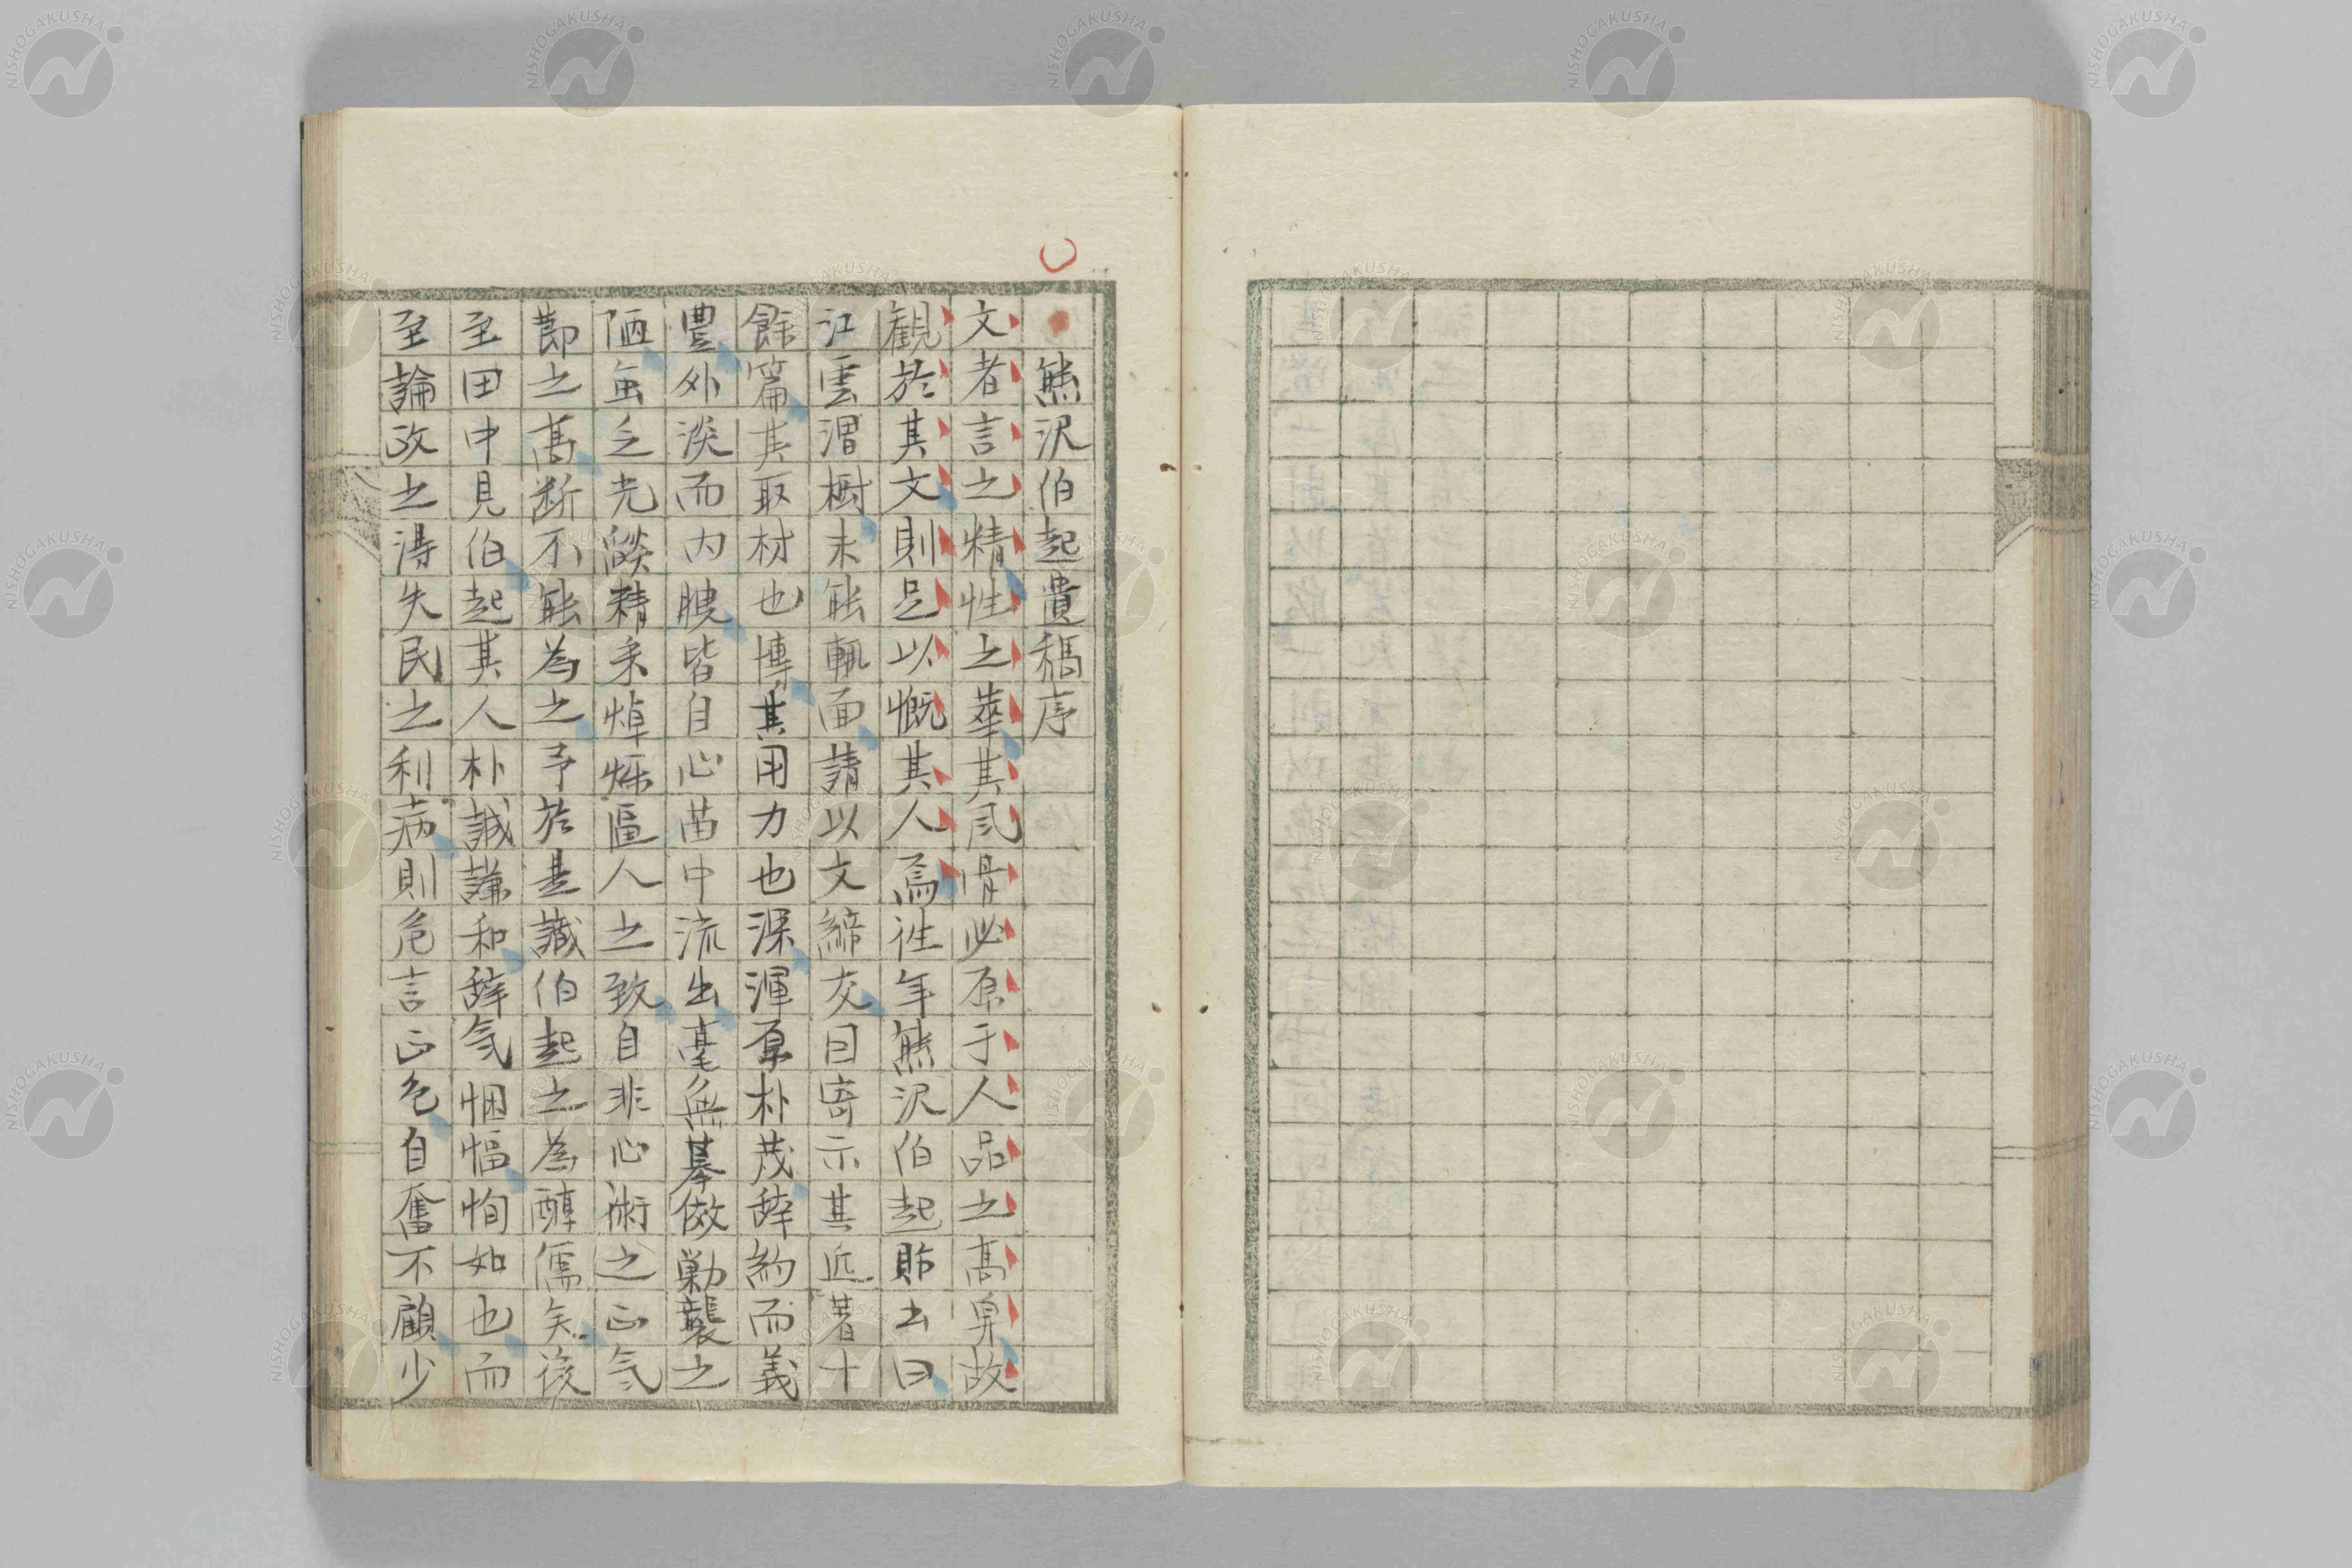 熊沢伯起遺稿序
文者言之精性之華其風骨必原于人品之高卑故
観於其文則足以慨其人焉往年熊沢伯起貽書曰
江雲渭樹未能執面請以文締交因寄示其近著十
餘篇其取材也博其用力也深渾厚朴茂辞約而義
豊外淡而内腴皆自心苗中流出毫無摹倣勦襲之
陋虽乏光燄精采焯爍逼人之致自非心術之正気
節之高断不能為之予於是識伯起之為醇儒矣後
至田中見伯起其人朴誠謙和辞気悃愊恂如也而
至論政之得失民之利病則危言正色自奮不顧少
NISHOGAKUSHA